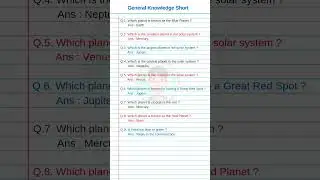 General Knowledge Short
Q.1. Which planet is known as the Blue Planet ?
Ans : Earth
Q.2. Which is the smallest planet in our solar system ?
Ans : Mercury
Q.3. Which is the largest planet in the solar system ?
Ans : Jupiter
Q.4. Which is the coldest planet in the solar system ?
Ans : Neptune
Q.5. Which planet is the hottest in the solar system ?
Ans : Venus
Q.6. Which planet is famous for having a Great Red Spot ?
Ans : Jupiter
Q.7. Which planet is closest to the sun ?
Ans : Mercury
Q.8. Which planet is known as the Red Planet ?
Ans : Mars
Q.9.
Ans :
Q.4. Which is
Ans : Neptu
Q.5. Which plan
Ans : Venus
Q.6. Which plan
Ans : Jupite
Q.7 Which plane
Ans : Mercu
Q.8. Which plan
solar system ?
solar system ?
a Great Red Spot ?
Planet ?